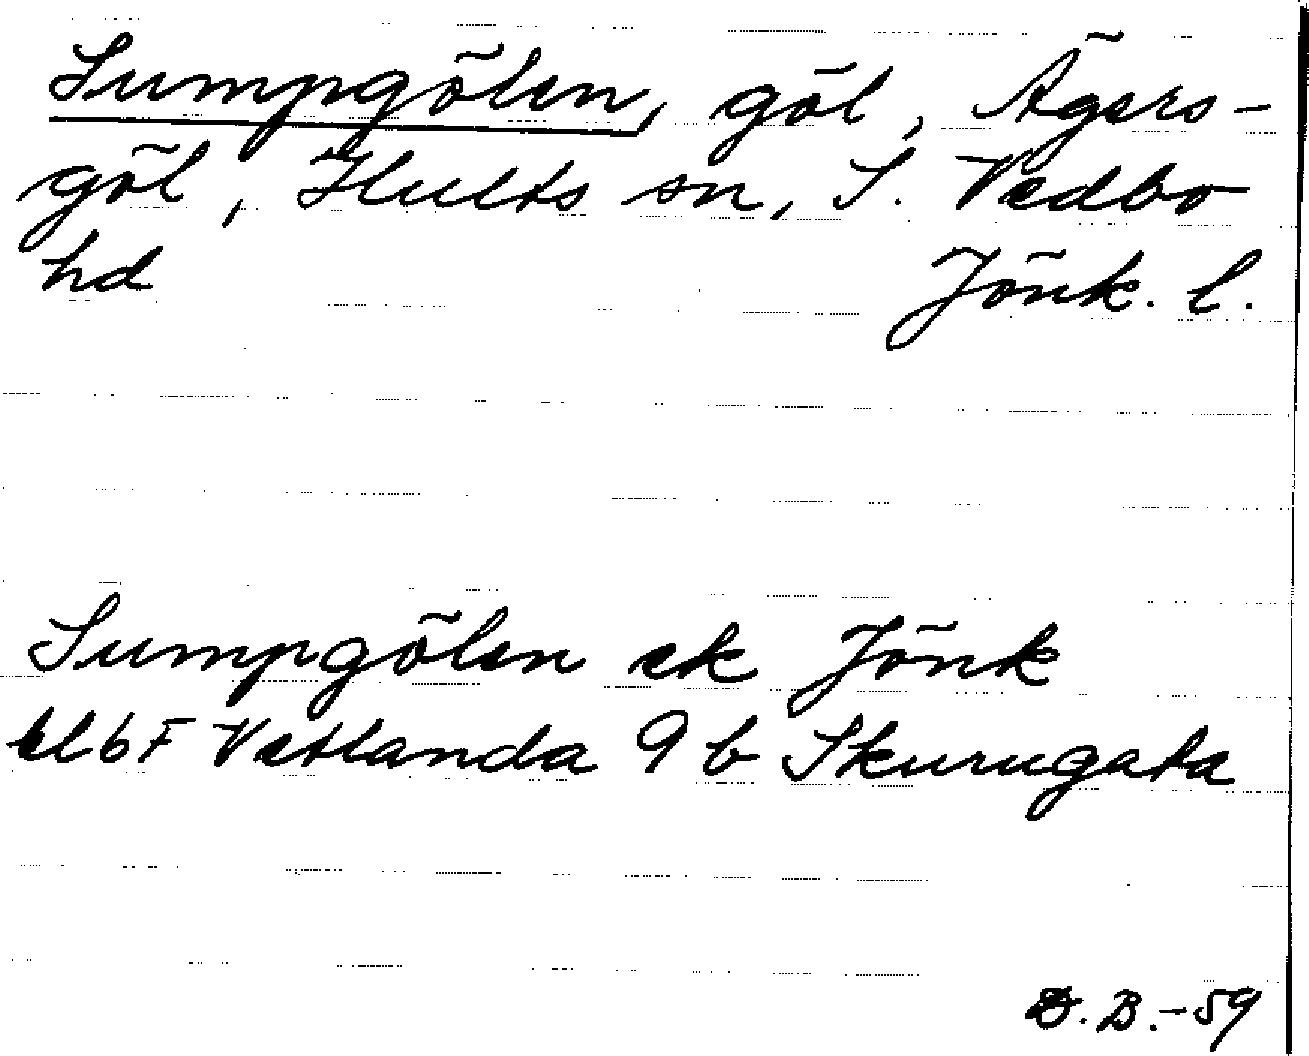 Sumpgölen, göl, Ägers-
göl, Hults sn, S. Vedbo
hd Jönk. l.
Sumpgölen ek Jönk
bl 6F Vetlanda 9 b Skurugata
B.-59